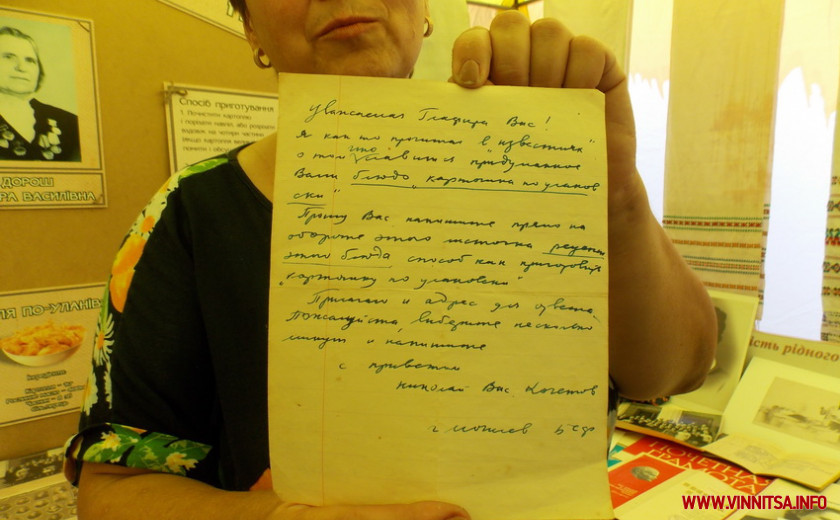 ДОРОШ
РА ВАСИЛІВНА
Спосіб приготування
1. Почистити картоплю
Уважаемая Глафира Вас!
Я как то прочитал в "известиях"
о том что славится придуманное
Вами блюдо "картошка по уланов
ски"
Прошу Вас напишите прямо на
обороте этого листочка рецепт
этого блюда способ как приготовить
"картошку по улановски"
Прилагаю и адрес для ответа.
Пожалуйста, выберите несколько
минут и напишите
с приветом
Николай Вас. Кочетов
г. Могилев БССР
ЛЯ ПО-УЛАНІВ
Інгредієнти:
ість рідного
ПОЧЕТНАЯ
ГРАМОТА
WWW.VINNITSA.INFO